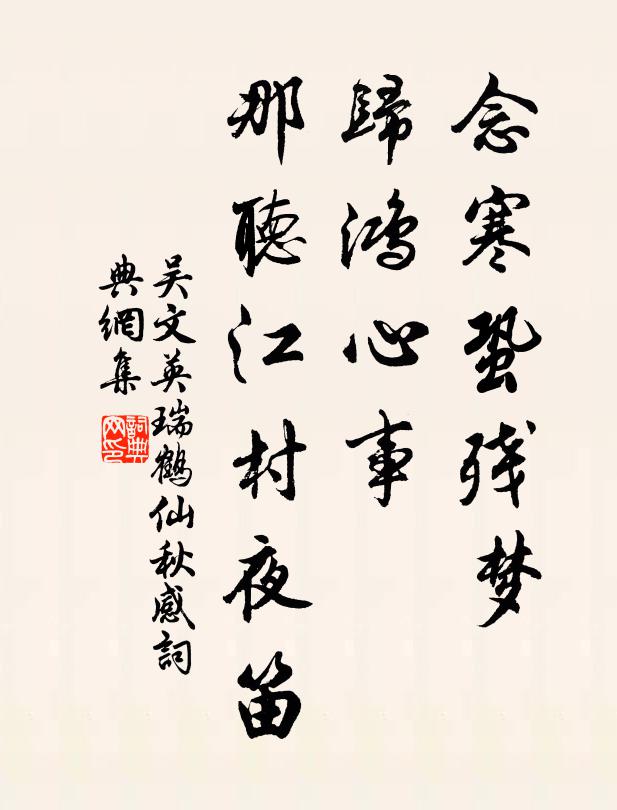 念寒蛩残梦
歸鸿心事
那聽江村夜笛
吴文英瑞鶴仙秋感詞
典網集
詞典
网印